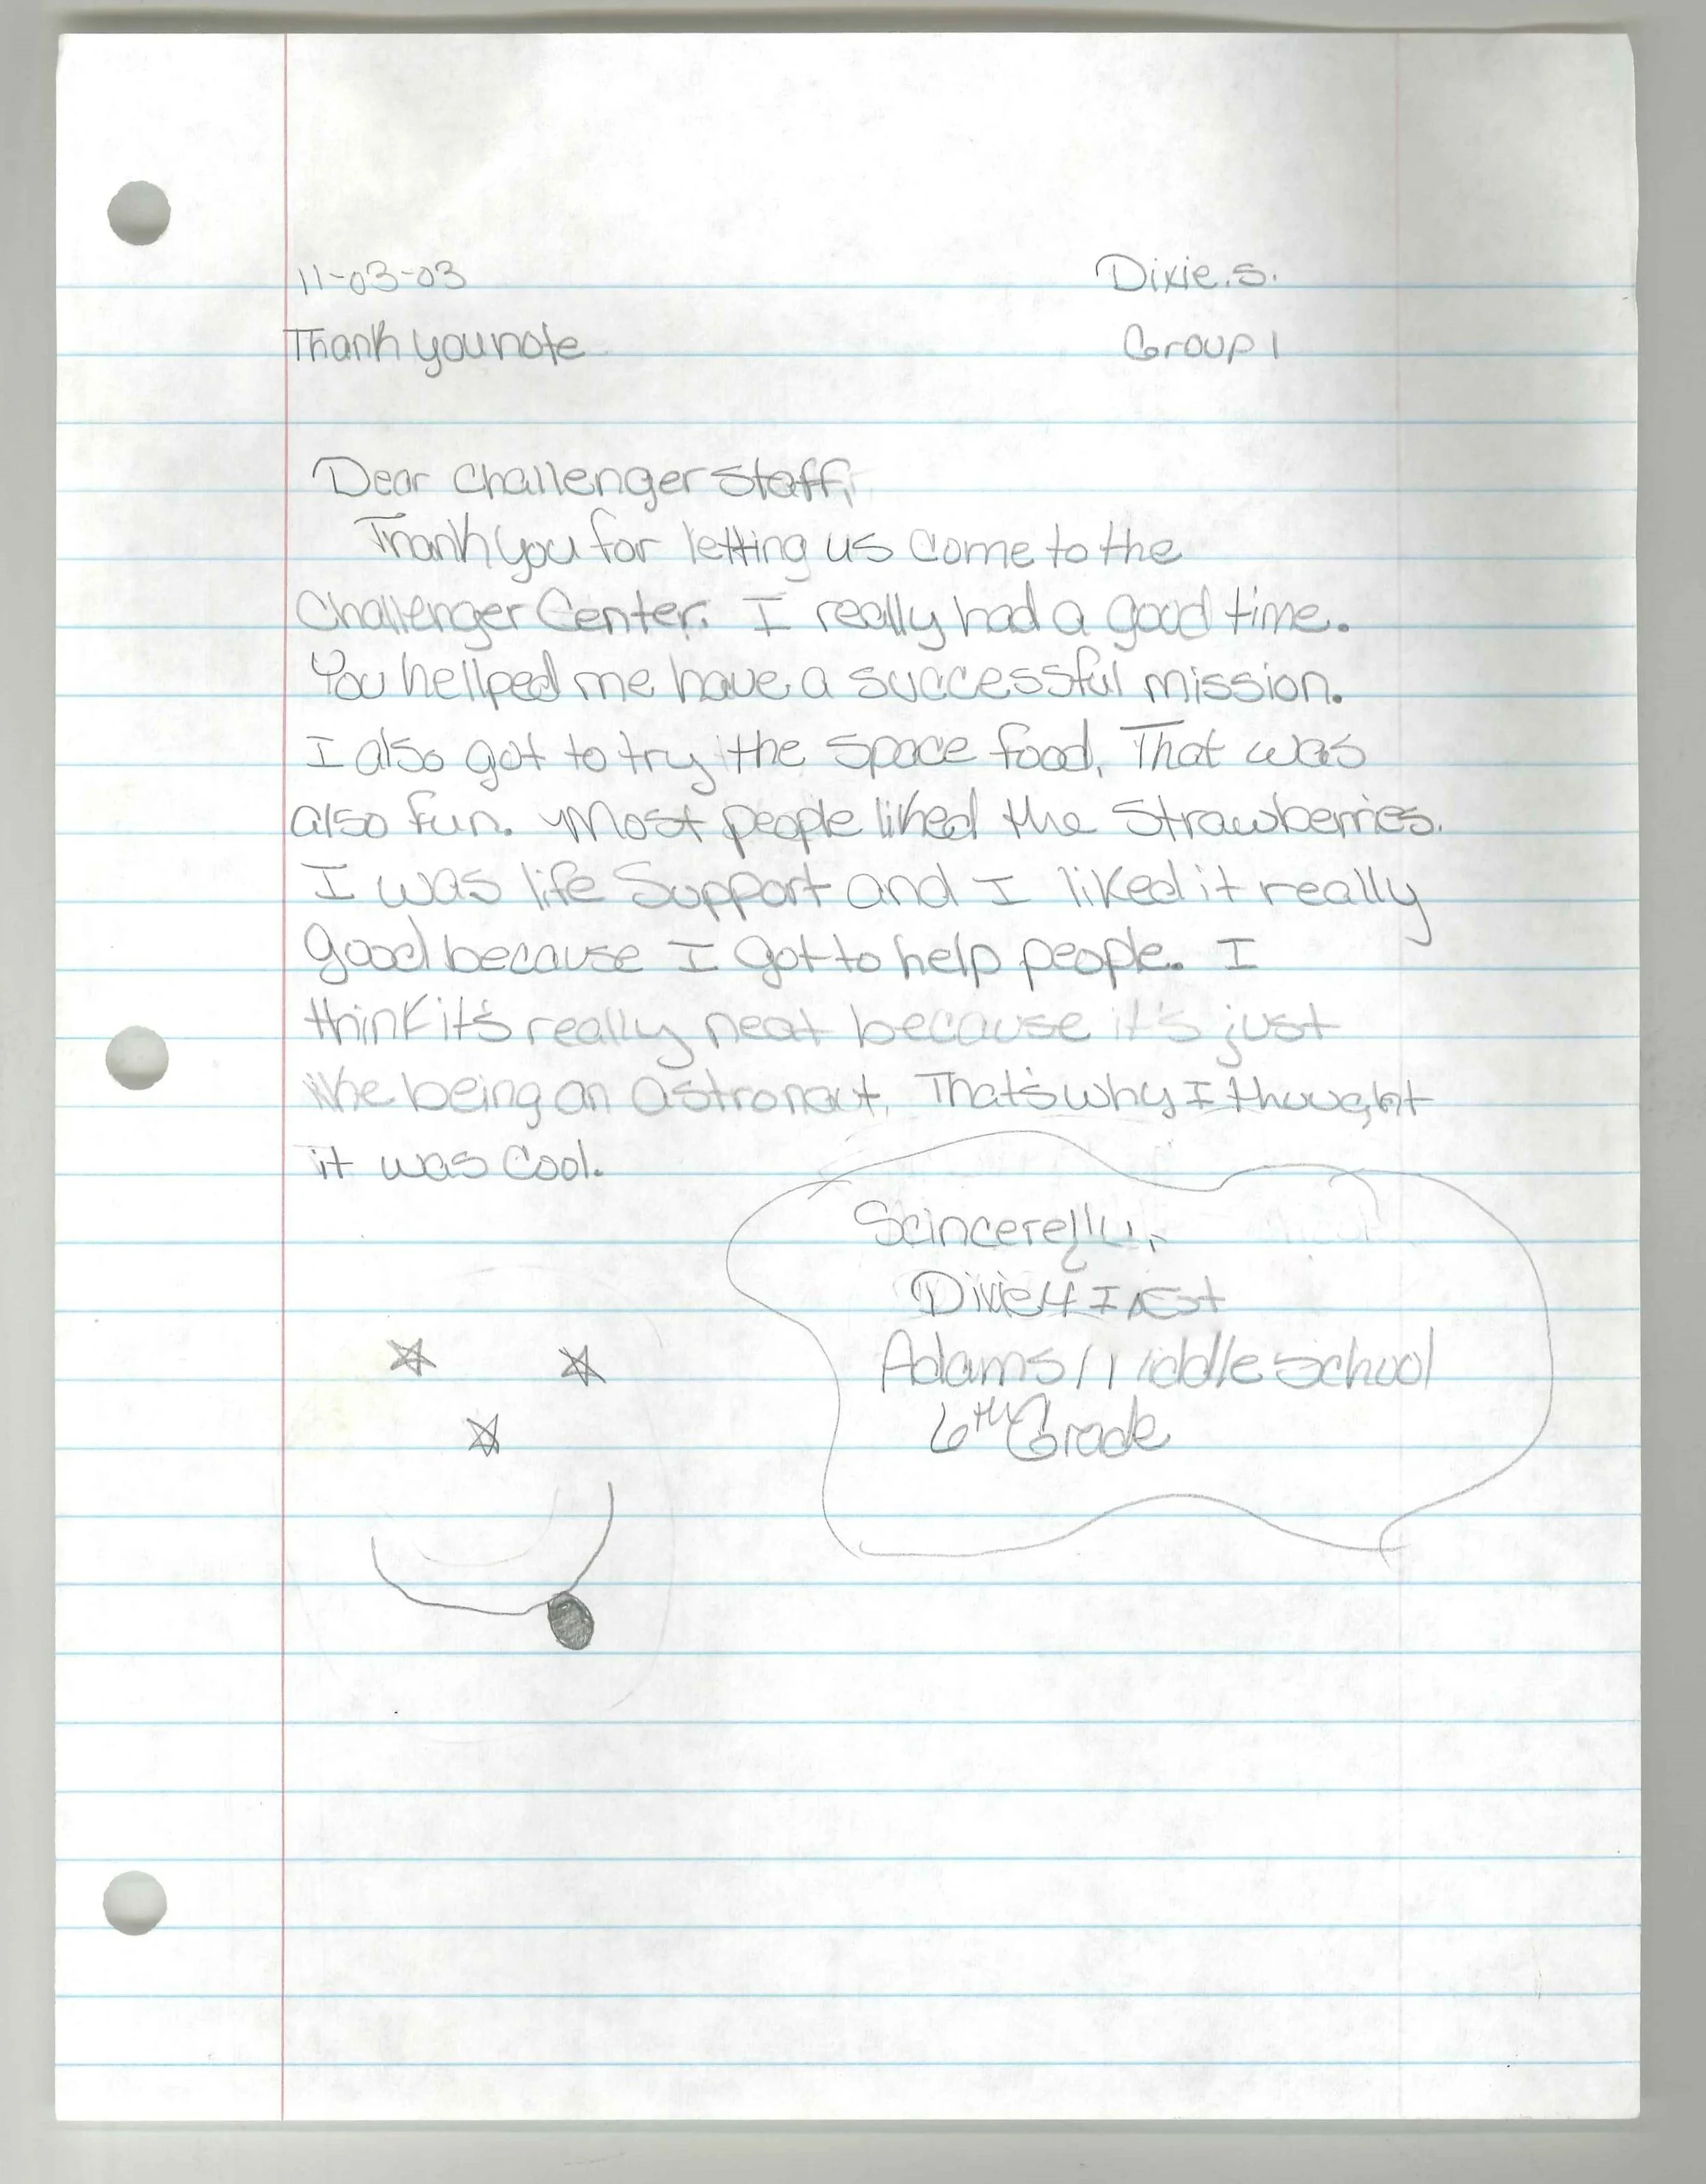 11-03-03 Dixie.S.
Thank you note Group 1
Dear Challenger Staff,
Thank you for letting us come to the
Challenger Center. I really had a good time.
You hellped me have a successful mission.
I also got to try the space food. That was
also fun. Most people liked the strawberries.
I was life Support and I liked it really
good because I got to help people. I
think it's really neat because it's just
like being an astronaut. That's why I thought
it was cool.
Scincerelly,
Dixie
Adams Middle School
6th Grade